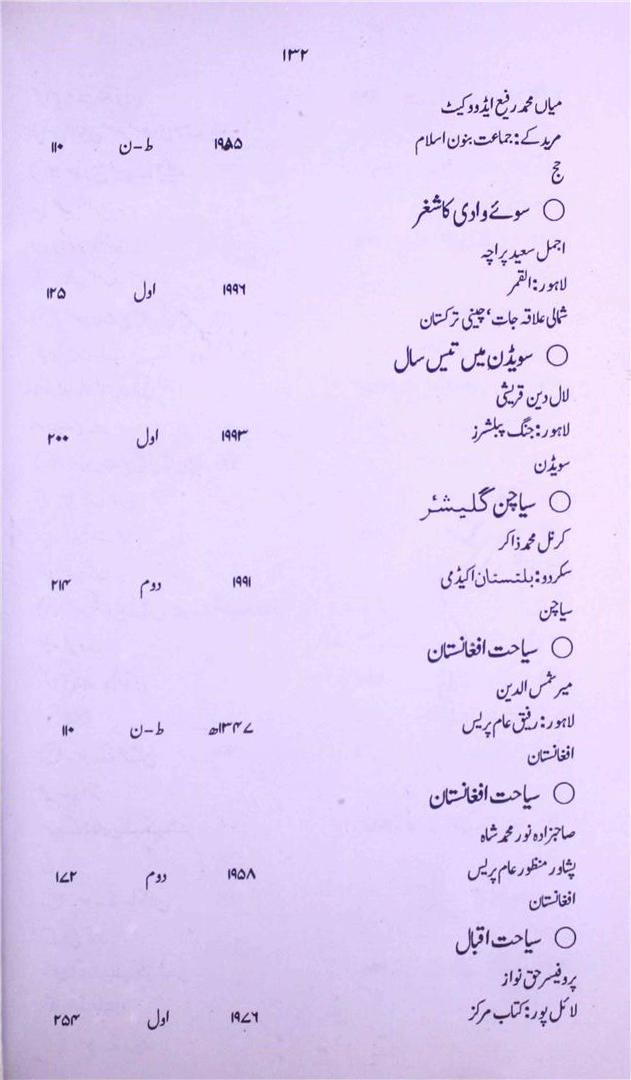 ۱۳۲
میاں محمد رفیع ایڈووکیٹ
مریدکے: جماعت بنون اسلام ۱۹۸۵ ط-ن ۱۱۰
حج
○ سوئے وادی کاشغر
اجمل سعید پراچہ
لاہور: القمر ۱۹۹۶ اول ۱۲۵
شمالی علاقہ جات، چینی ترکستان
○ سویڈن میں تیس سال
لال دین قریشی
لاہور: جنگ پبلشرز ۱۹۹۳ اول ۲۰۰
سویڈن
○ سیاچن گلیشئر
کرنل محمد ذاکر
سکردو: بلتستان اکیڈمی ۱۹۹۱ دوم ۲۱۴
سیاچن
○ سیاحت افغانستان
میر شمس الدین
لاہور: رفیق عام پریس ۱۳۴۷ھ ط-ن ۱۱۰
افغانستان
○ سیاحت افغانستان
صاحبزادہ نور محمد شاہ
پشاور منظور عام پریس ۱۹۵۸ دوم ۱۷۲
افغانستان
○ سیاحت اقبال
پروفیسر حق نواز
لائل پور: کتاب مرکز ۱۹۷۶ اول ۲۵۴